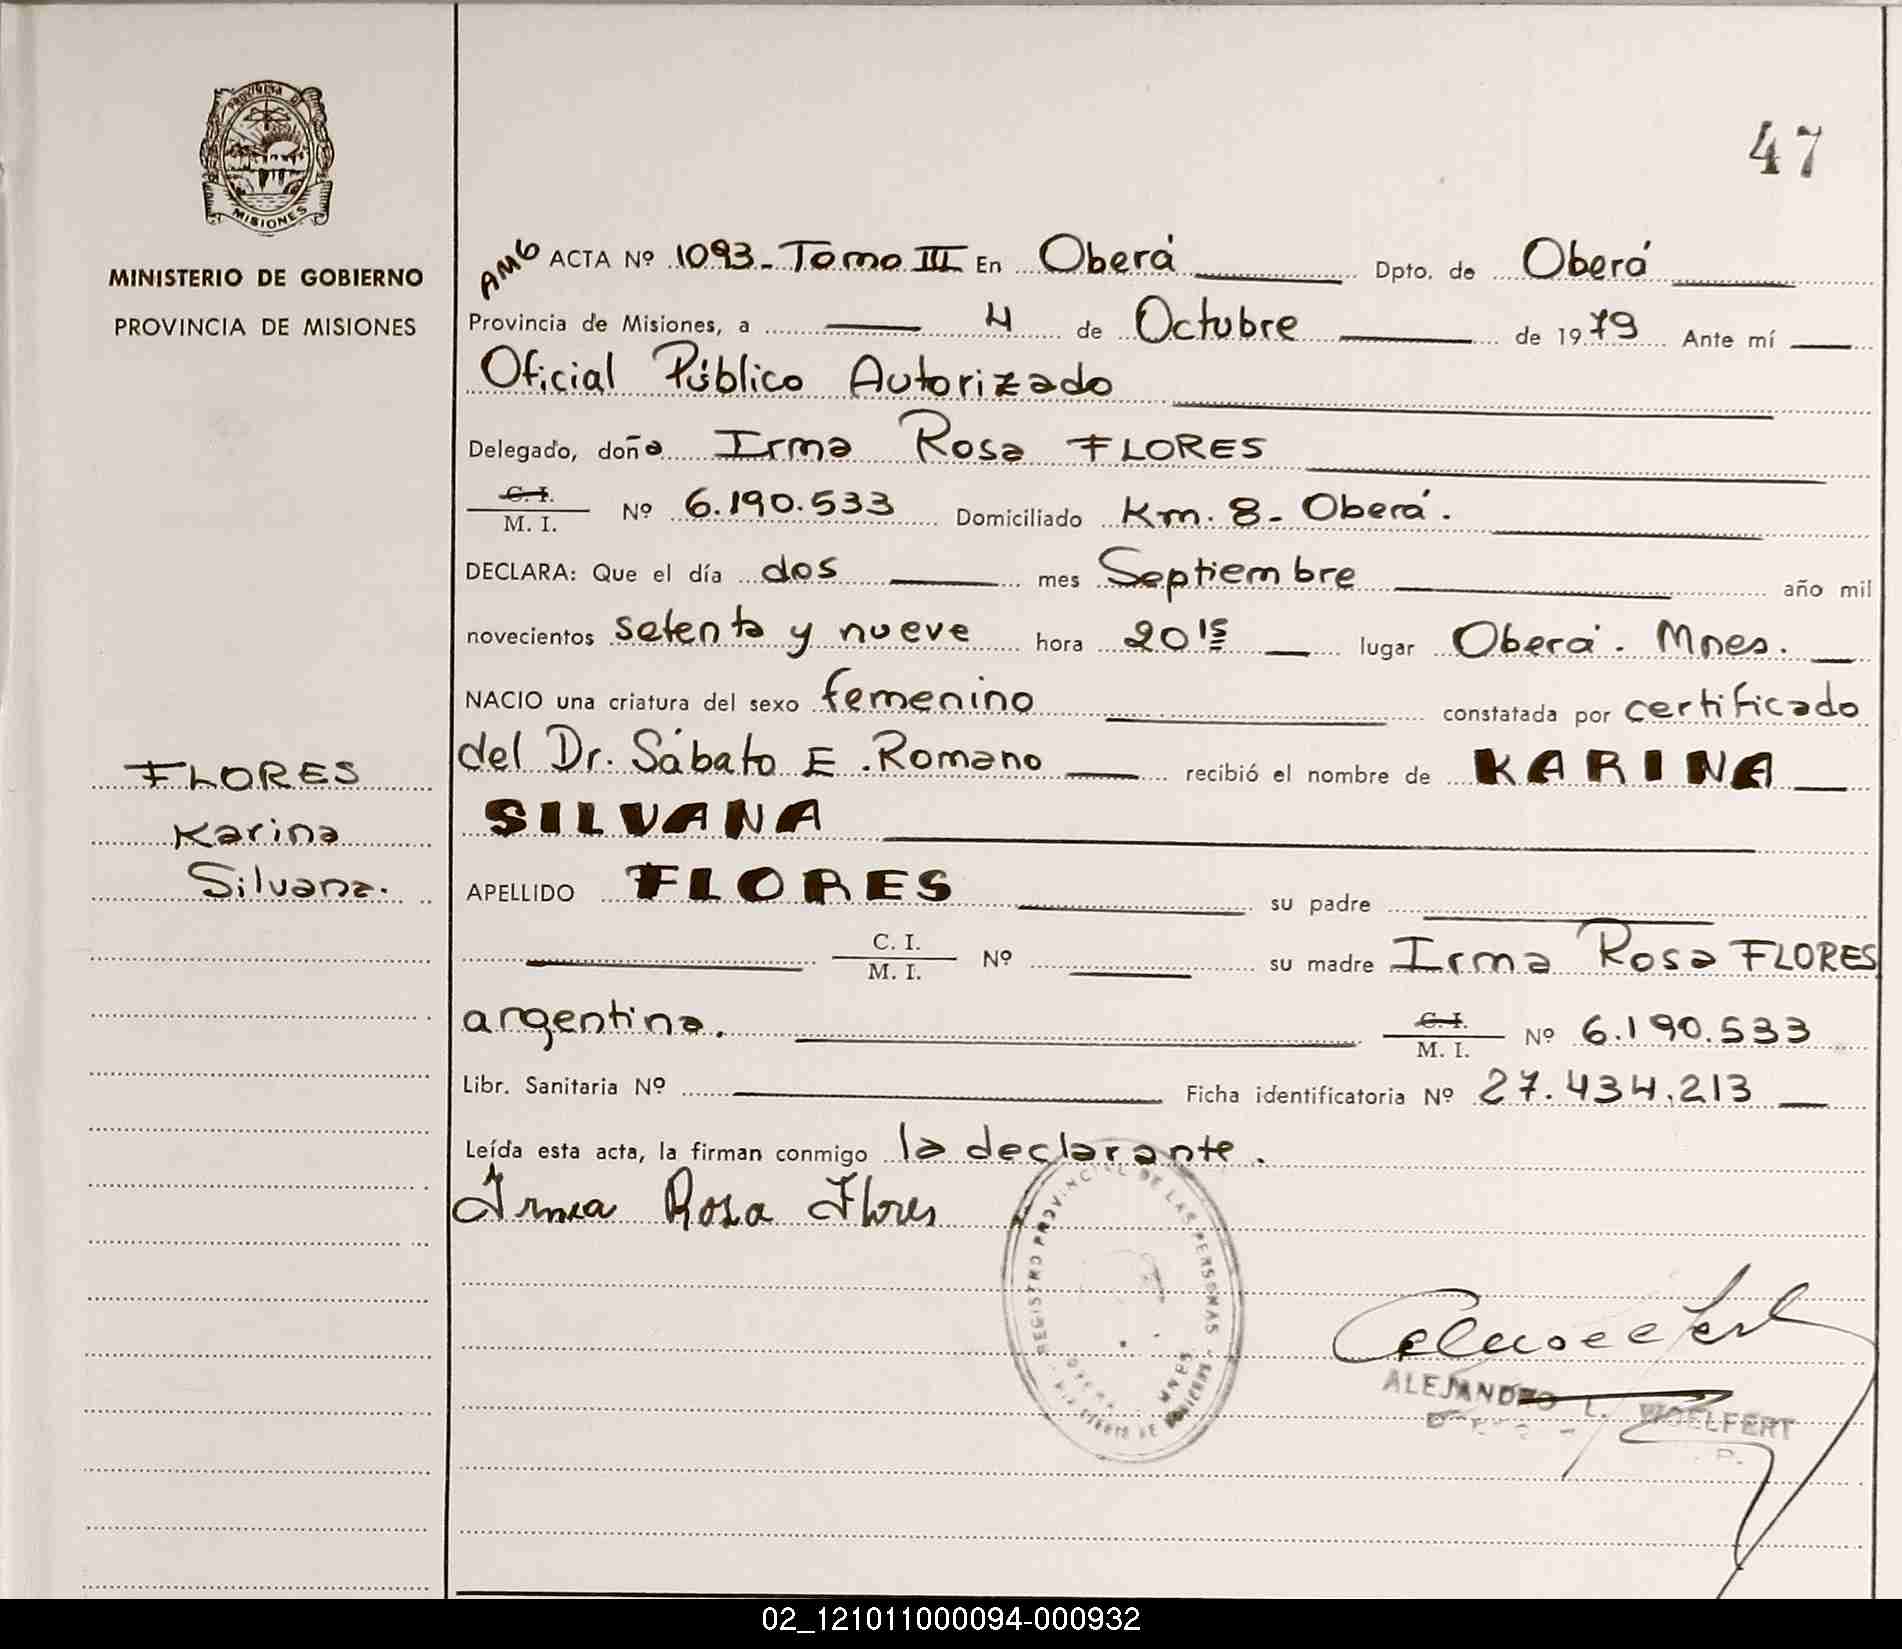 PROVINCIA DE
MISIONES
MINISTERIO DE GOBIERNO
PROVINCIA DE MISIONES
FLORES
Karina
Silvana.
47
AMG ACTA Nº 1093_Tomo III En Oberá Dpto. de Oberá
Provincia de Misiones, a 4 de Octubre de 1979 Ante mí
Oficial Público Autorizado
Delegado, doña Irma Rosa FLORES
C. I.
M. I. Nº 6.190.533 Domiciliado Km. 8_ Oberá.
DECLARA: Que el día dos mes Septiembre año mil
novecientos setenta y nueve hora 20 15 lugar Oberá. Mnes.
NACIO una criatura del sexo femenino constatada por certificado
del Dr. Sábato E. Romano recibió el nombre de KARINA
SILVANA
APELLIDO FLORES su padre
C. I.
M. I. Nº su madre Irma Rosa FLORES
argentina. C. I.
M. I. Nº 6.190.533
Libr. Sanitaria Nº Ficha identificatoria Nº 27.434.213
Leída esta acta, la firman conmigo la declarante.
Irma Rosa Flores
REGISTRO PROVINCIAL DE LAS PERSONAS
OBERA MNES.
MINISTERIO DE GOBIERNO
ALEJANDRO L. WOELFERT
02_121011000094-000932